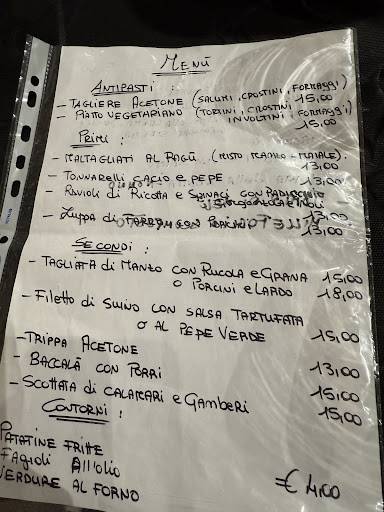 MENÙ
ANTIPASTI :
- TAGLIERE ACETONE (SALUMI, CROSTINI, FORMAGGI) 15,00
- PIATTO VEGETARIANO (TORTINI, CROSTINI, INVOLTINI, FORMAGGI) 15,00
PRIMI :
- MALTAGLIATI AL RAGÙ (MISTO MANZO - MAIALE). 13,00
- TONNARELLI CACIO e PEPE 13,00
- RAVIOLI di RICOTTA e SPINACI CON RADICCHIO
e NOCI 13,00
- ZUPPA di CON PORCINI 13,00
SECONDI :
- TAGLIATA di MANZO CON RUCOLA e GRANA 15,00
O PORCINI e LARDO 18,00
- FILETTO di SUINO CON SALSA TARTUFATA
O AL PEPE VERDE 15,00
- TRIPPA ACETONE 13,00
- BACCALÀ CON PORRI 15,00
- SCOTTATA di CALAMARI e GAMBERI 15,00
CONTORNI :
PATATINE FRITTE
FAGIOLI All'OLIO
VERDURE AL FORNO € 4,00